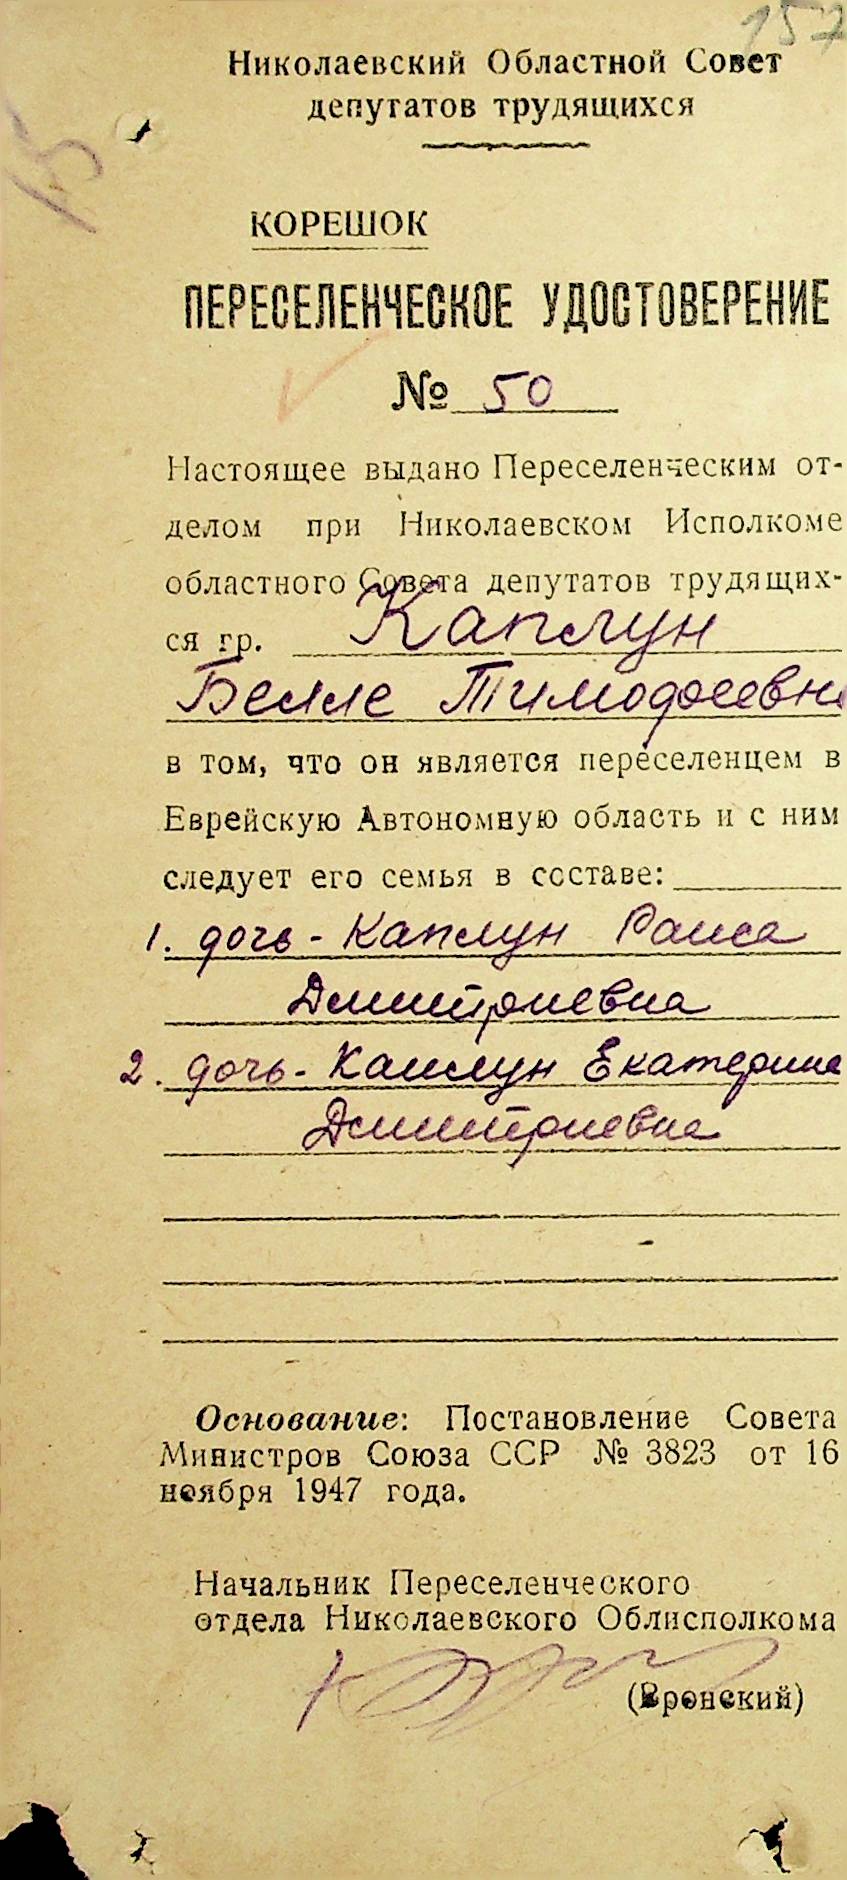 157
15
Николаевский Областной Совет
депутатов трудящихся
КОРЕШОК
ПЕРЕСЕЛЕНЧЕСКОЕ УДОСТОВЕРЕНИЕ
№ 50
Настоящее выдано Переселенческим от-
делом при Николаевском Исполкоме
областного Совета депутатов трудящих-
ся гр. Каплун
Белле Тимофеевне
в том, что он является переселенцем в
Еврейскую Автономную область и с ним
следует его семья в составе:
1. дочь - Каплун Раиса
Дмитриевна
2. дочь - Каплун Екатерина
Дмитриевна
Основание: Постановление Совета
Министров Союза ССР № 3823 от 16
ноября 1947 года.
Начальник Переселенческого
отдела Николаевского Облисполкома
(Вронский)